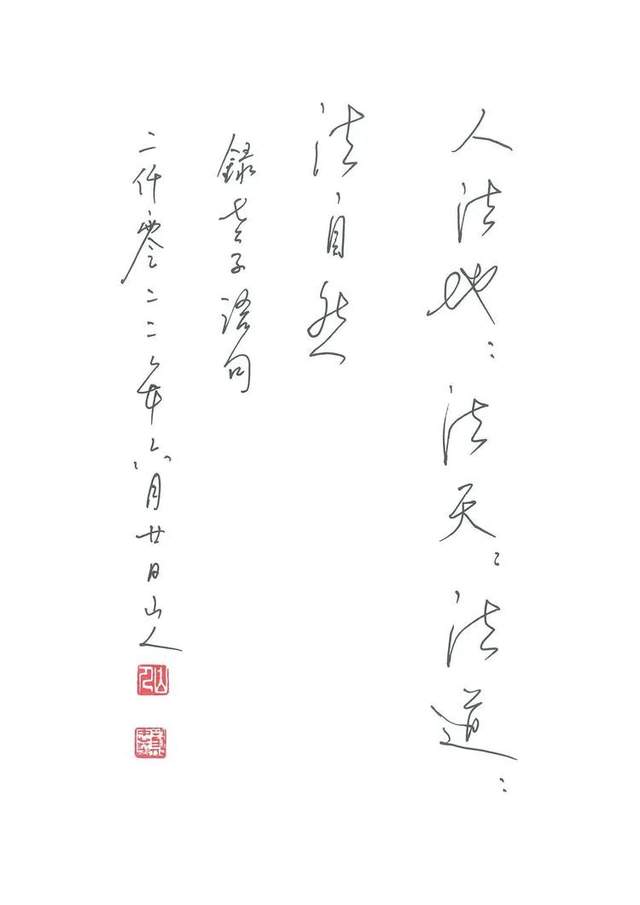 人法地〻法天〻法道〻
法自然
錄老子語句
二仟零二二年六月廿日山人
山人